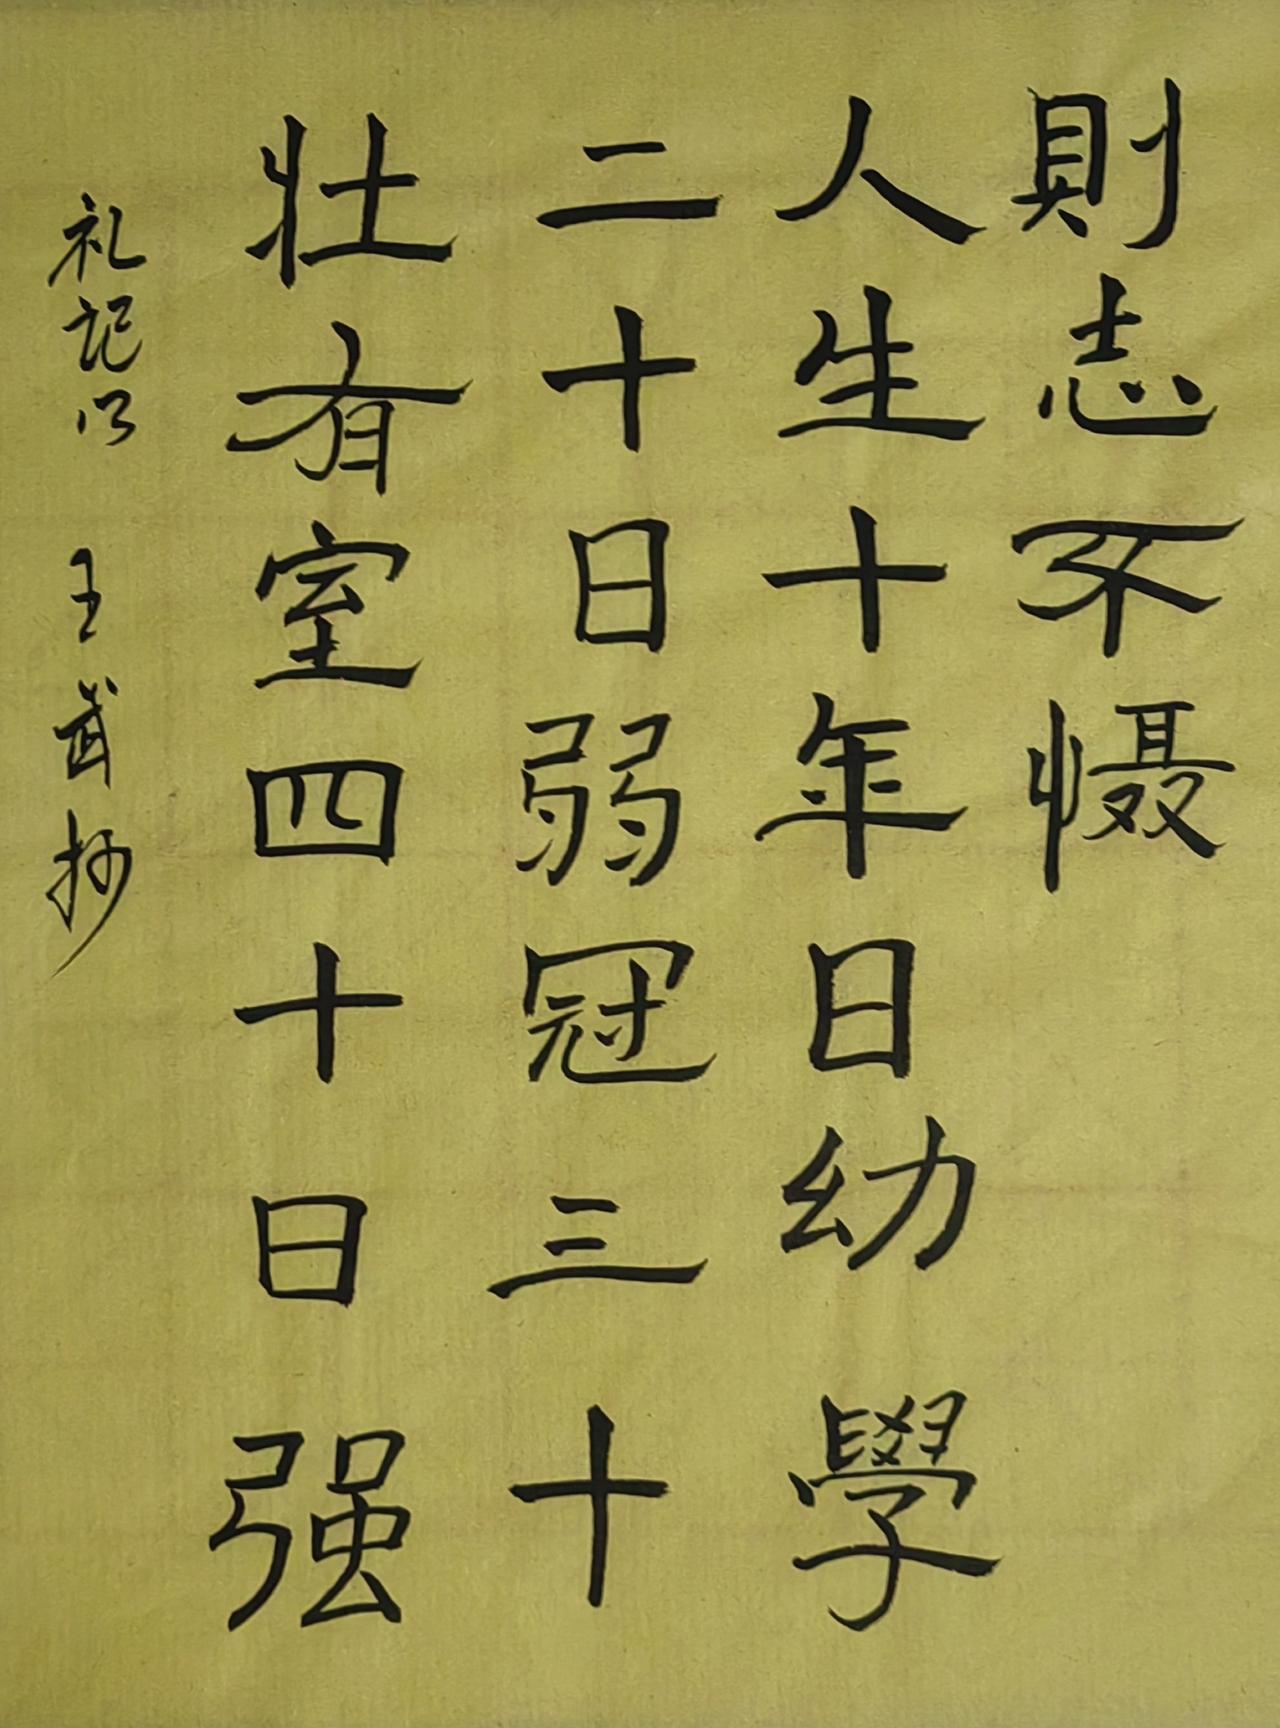 則志不慑
人生十年日幼學
二十日弱冠三十
壮有室四十日强
礼記句 王武抄